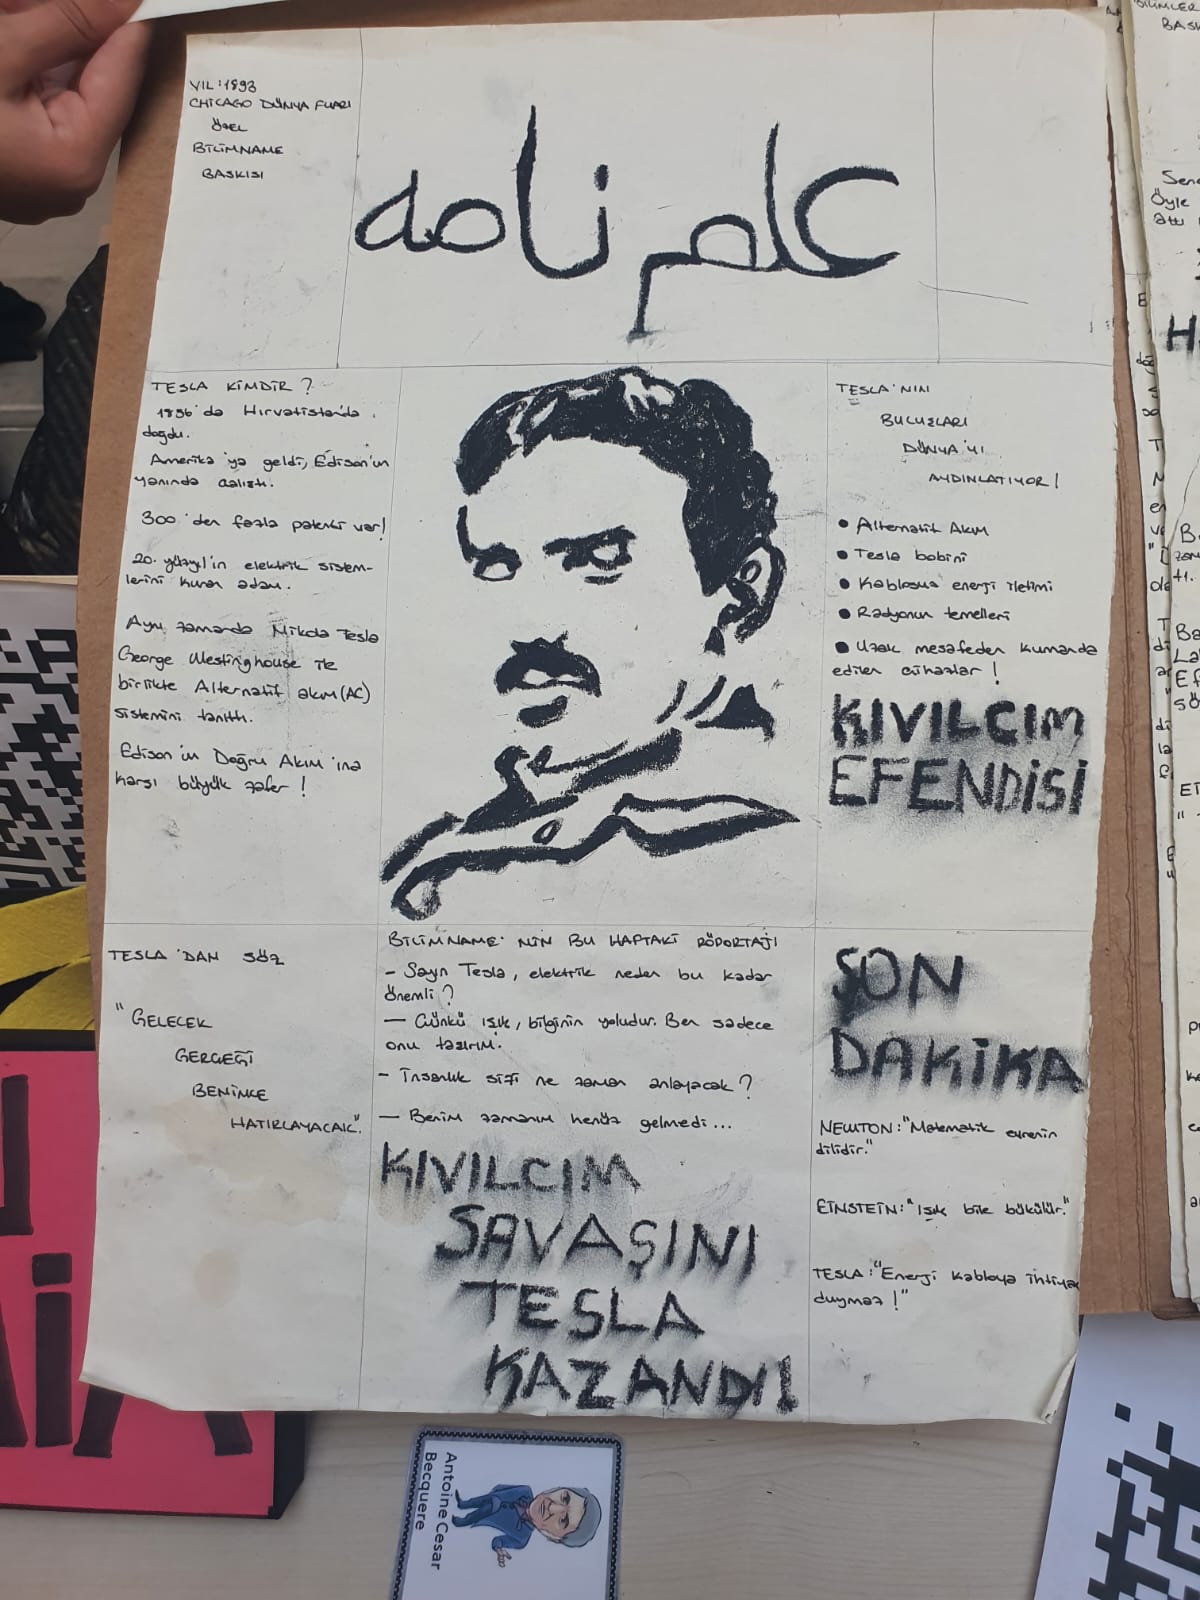 YIL:1893
CHICAGO DÜNYA FUARI
ÖZEL
BİLİMNAME
BASKISI
علم نامه
TESLA KİMDİR?
1856'da Hırvatistan'da
doğdu.
Amerika'ya geldi, Edison'un
yanında çalıştı.
300'den fazla patenti var!
20. yüzyıl'ın elektrik sistem-
lerini kuran adam.
Aynı zamanda Nikola Tesla
George Westinghouse ile
birlikte Alternatif akım (AC)
sistemini tanıttı.
Edison'ın Doğru Akım'ına
karşı büyük zafer!
TESLA'NIN
BULUŞLARI
DÜNYA'YI
AYDINLATIYOR!
• Alternatif Akım
• Tesla bobini
• Kablosuz enerji iletimi
• Radyonun temelleri
• Uzak mesafeden kumanda
edilen cihazlar!
KIVILCIM
EFENDİSİ
TESLA'DAN SÖZ
"GELECEK
GERÇEĞİ
BENİMLE
HATIRLAYACAK."
BİLİMNAME'NİN BU HAFTAKİ RÖPORTAJI
- Sayın Tesla, elektrik neden bu kadar
önemli?
— Çünkü ışık, bilginin yoludur. Ben sadece
onu taşırım.
- İnsanlık sizi ne zaman anlayacak?
— Benim zamanım henüz gelmedi...
KIVILCIM
SAVAŞINI
TESLA
KAZANDI!
SON
DAKİKA
NEWTON: "Matematik evrenin
dilidir."
EİNSTEİN: "Işık bile bükülür."
TESLA: "Enerji kabloya ihtiyaç
duymaz!"
Antoine Cesar
Becquere